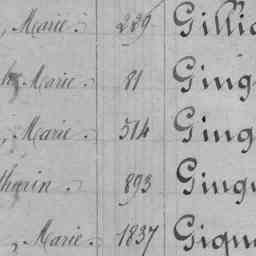 , Marie. 229 Gillio
Marie. 81 Ging
, Marie. 514 Ging
therin. 893 Gingu
, Marie. 1837 Gique